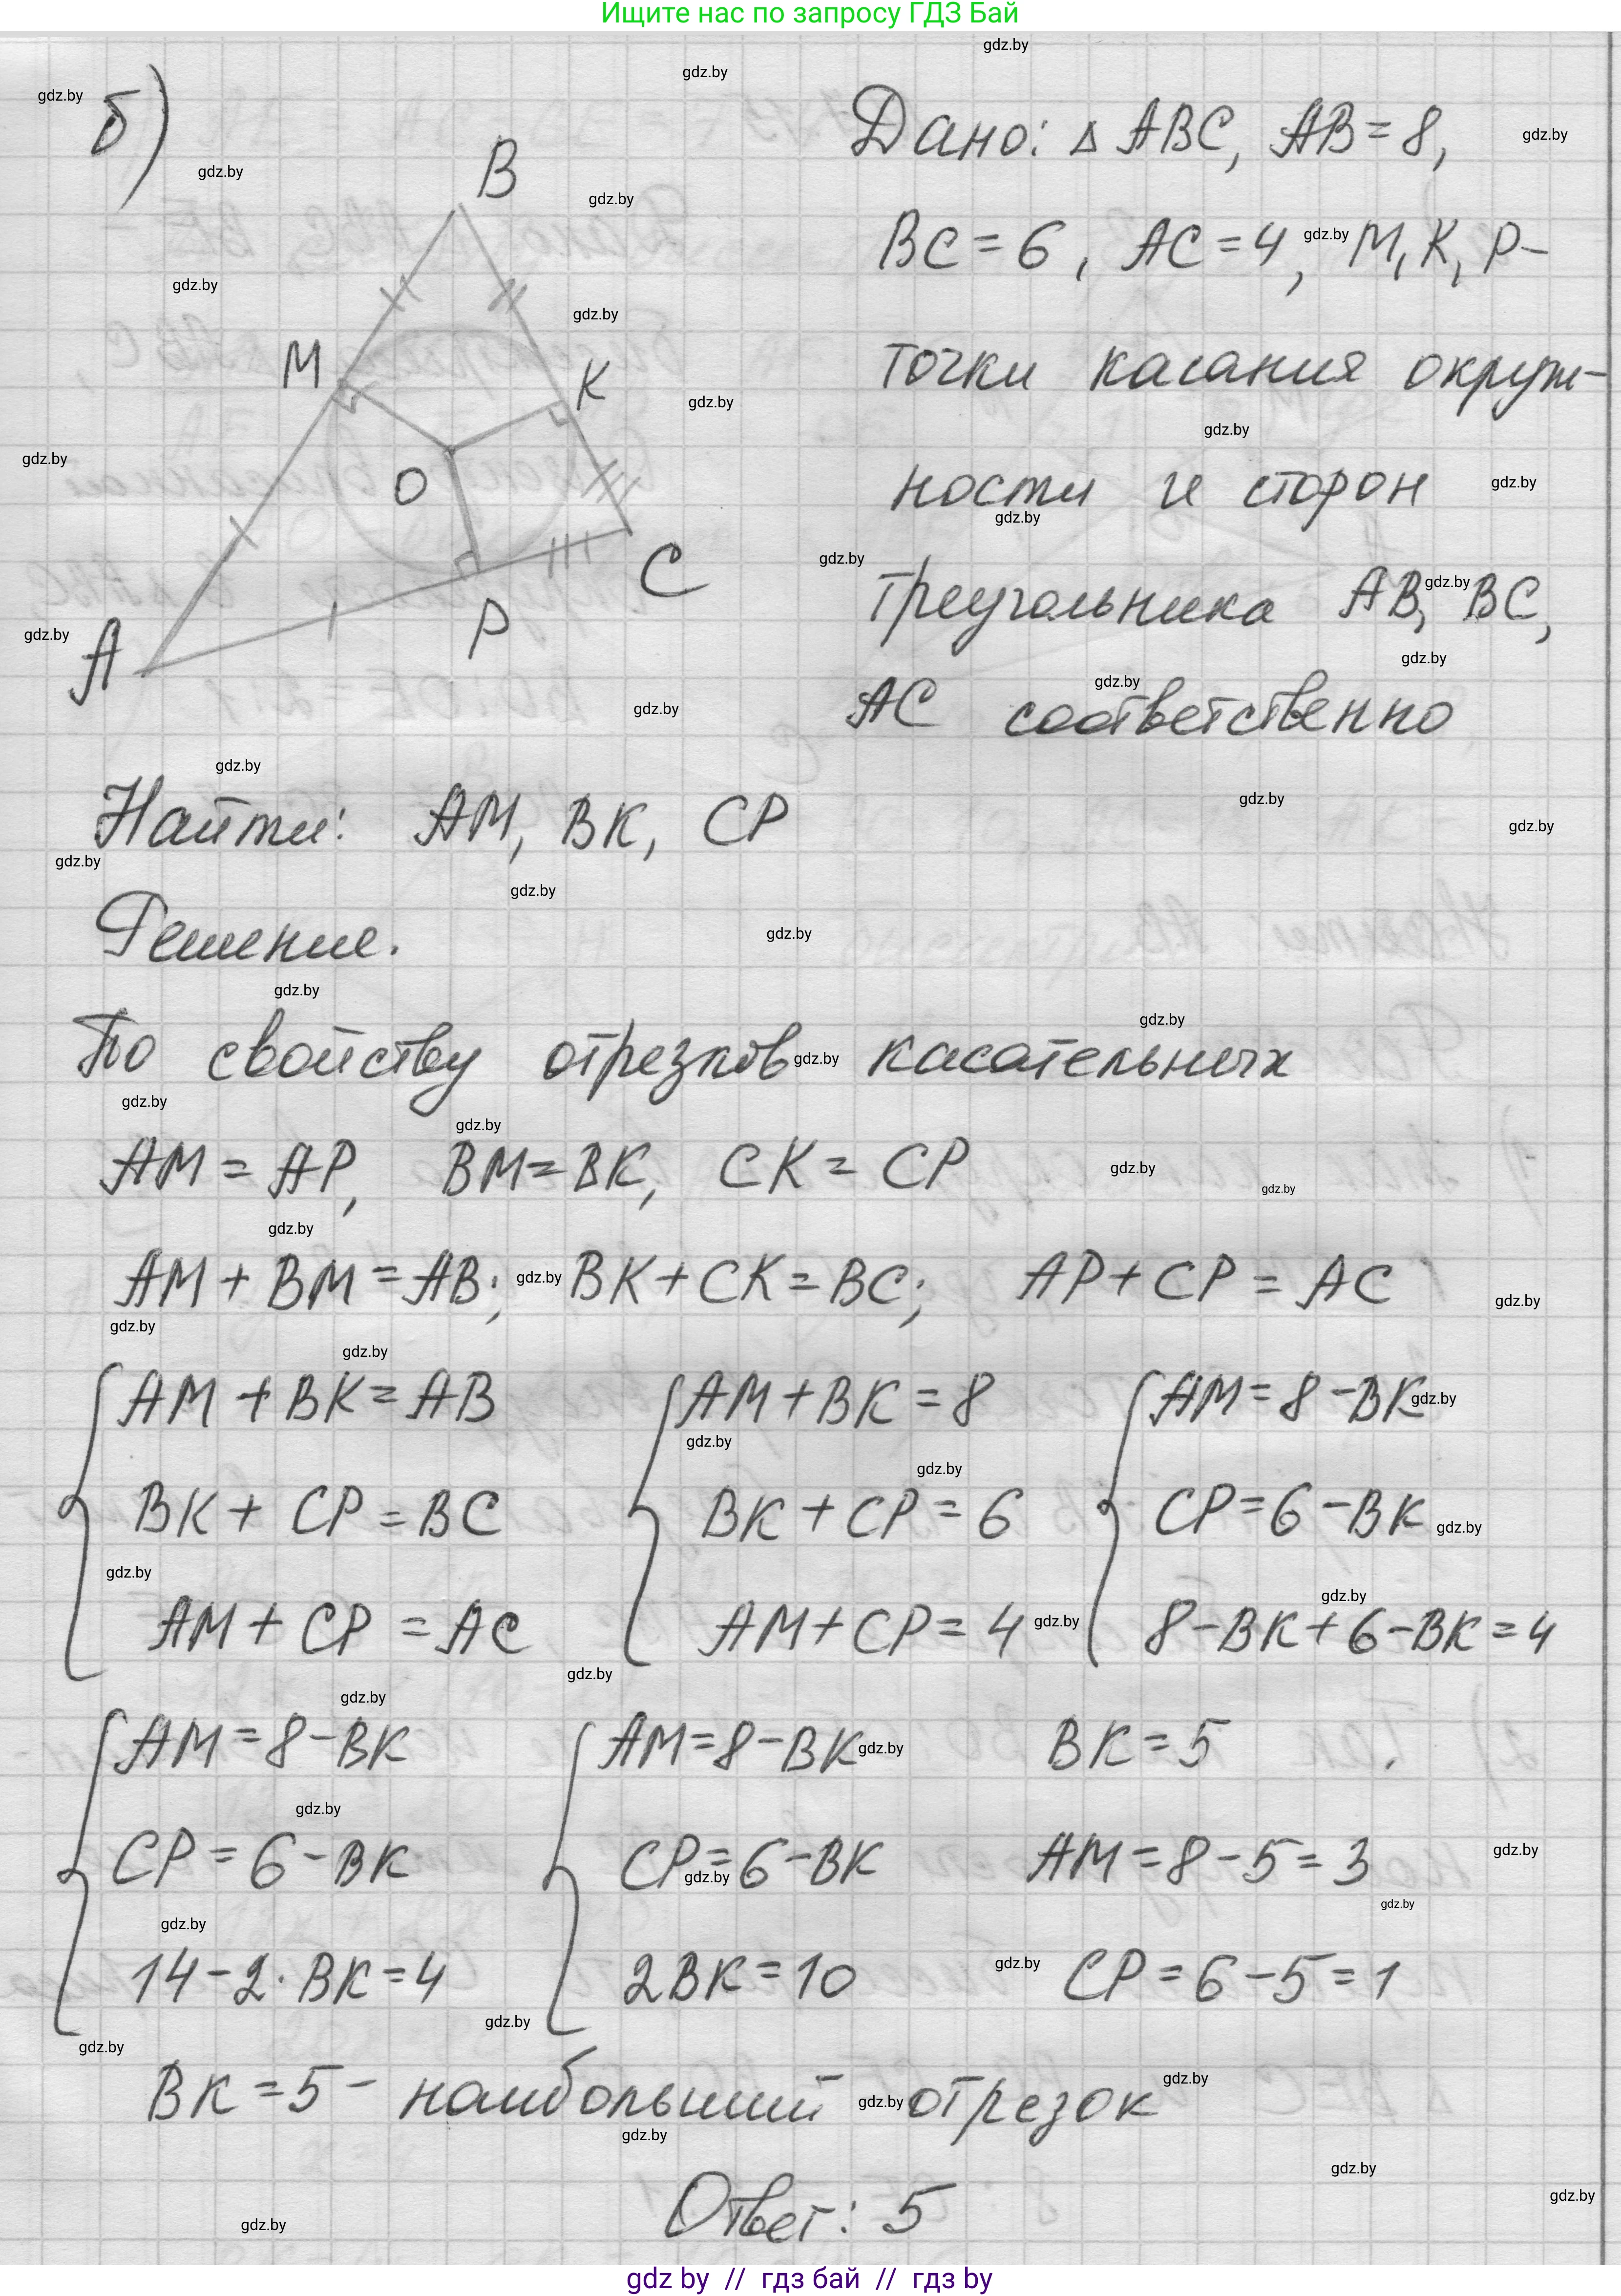 Ищите нас по запросу ГДЗ Бай
б)
B
M
K
O
C
P
A
Дано: Δ ABC, AB = 8,
BC = 6, AC = 4, M, K, P -
точки касания окруж-
ности и сторон
треугольника AB, BC,
AC соответственно
Найти: AM, BK, CP
Решение.
По свойству отрезков касательных
AM = AP, BM = BK, CK = CP
AM + BM = AB; BK + CK = BC; AP + CP = AC
AM + BK = AB AM + BK = 8 AM = 8 - BK
BK + CP = BC BK + CP = 6 CP = 6 - BK
AM + CP = AC AM + CP = 4 8 - BK + 6 - BK = 4
AM = 8 - BK AM = 8 - BK BK = 5
CP = 6 - BK CP = 6 - BK AM = 8 - 5 = 3
14 - 2 · BK = 4 2BK = 10 CP = 6 - 5 = 1
BK = 5 - наибольший отрезок
Ответ: 5
gdz by // гдз бай // гдз by